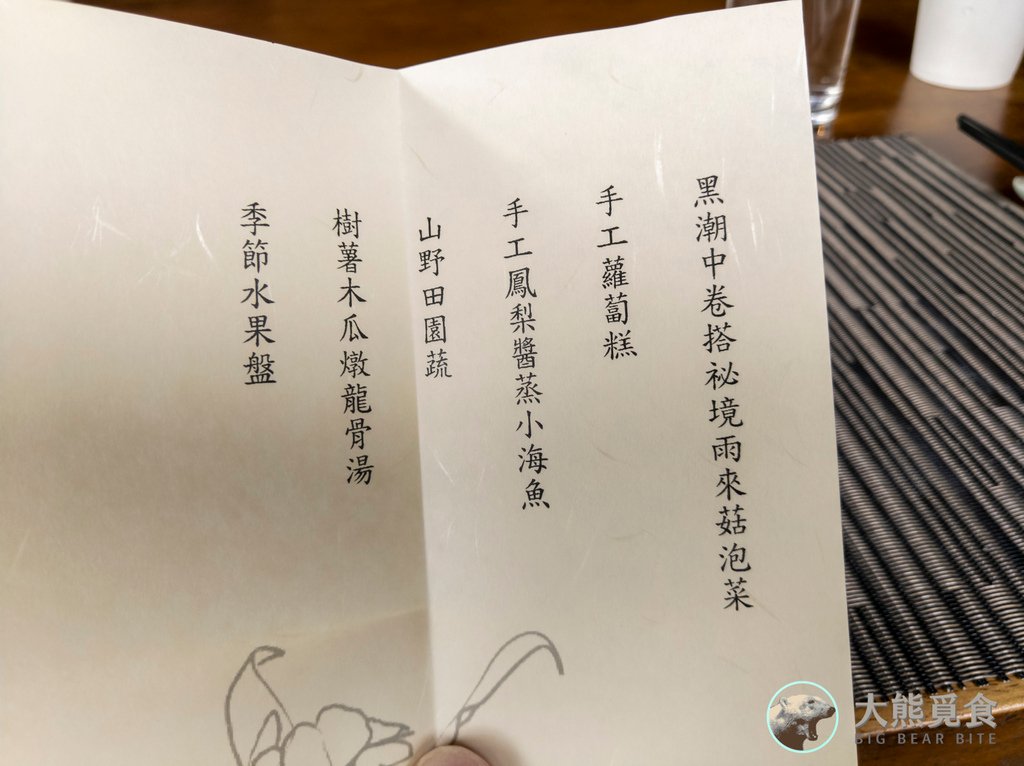 黑潮中卷搭祕境雨來菇泡菜
手工蘿蔔糕
手工鳳梨醬蒸小海魚
山野田園蔬
樹薯木瓜燉龍骨湯
季節水果盤
大熊覓食
BIG BEAR BITE